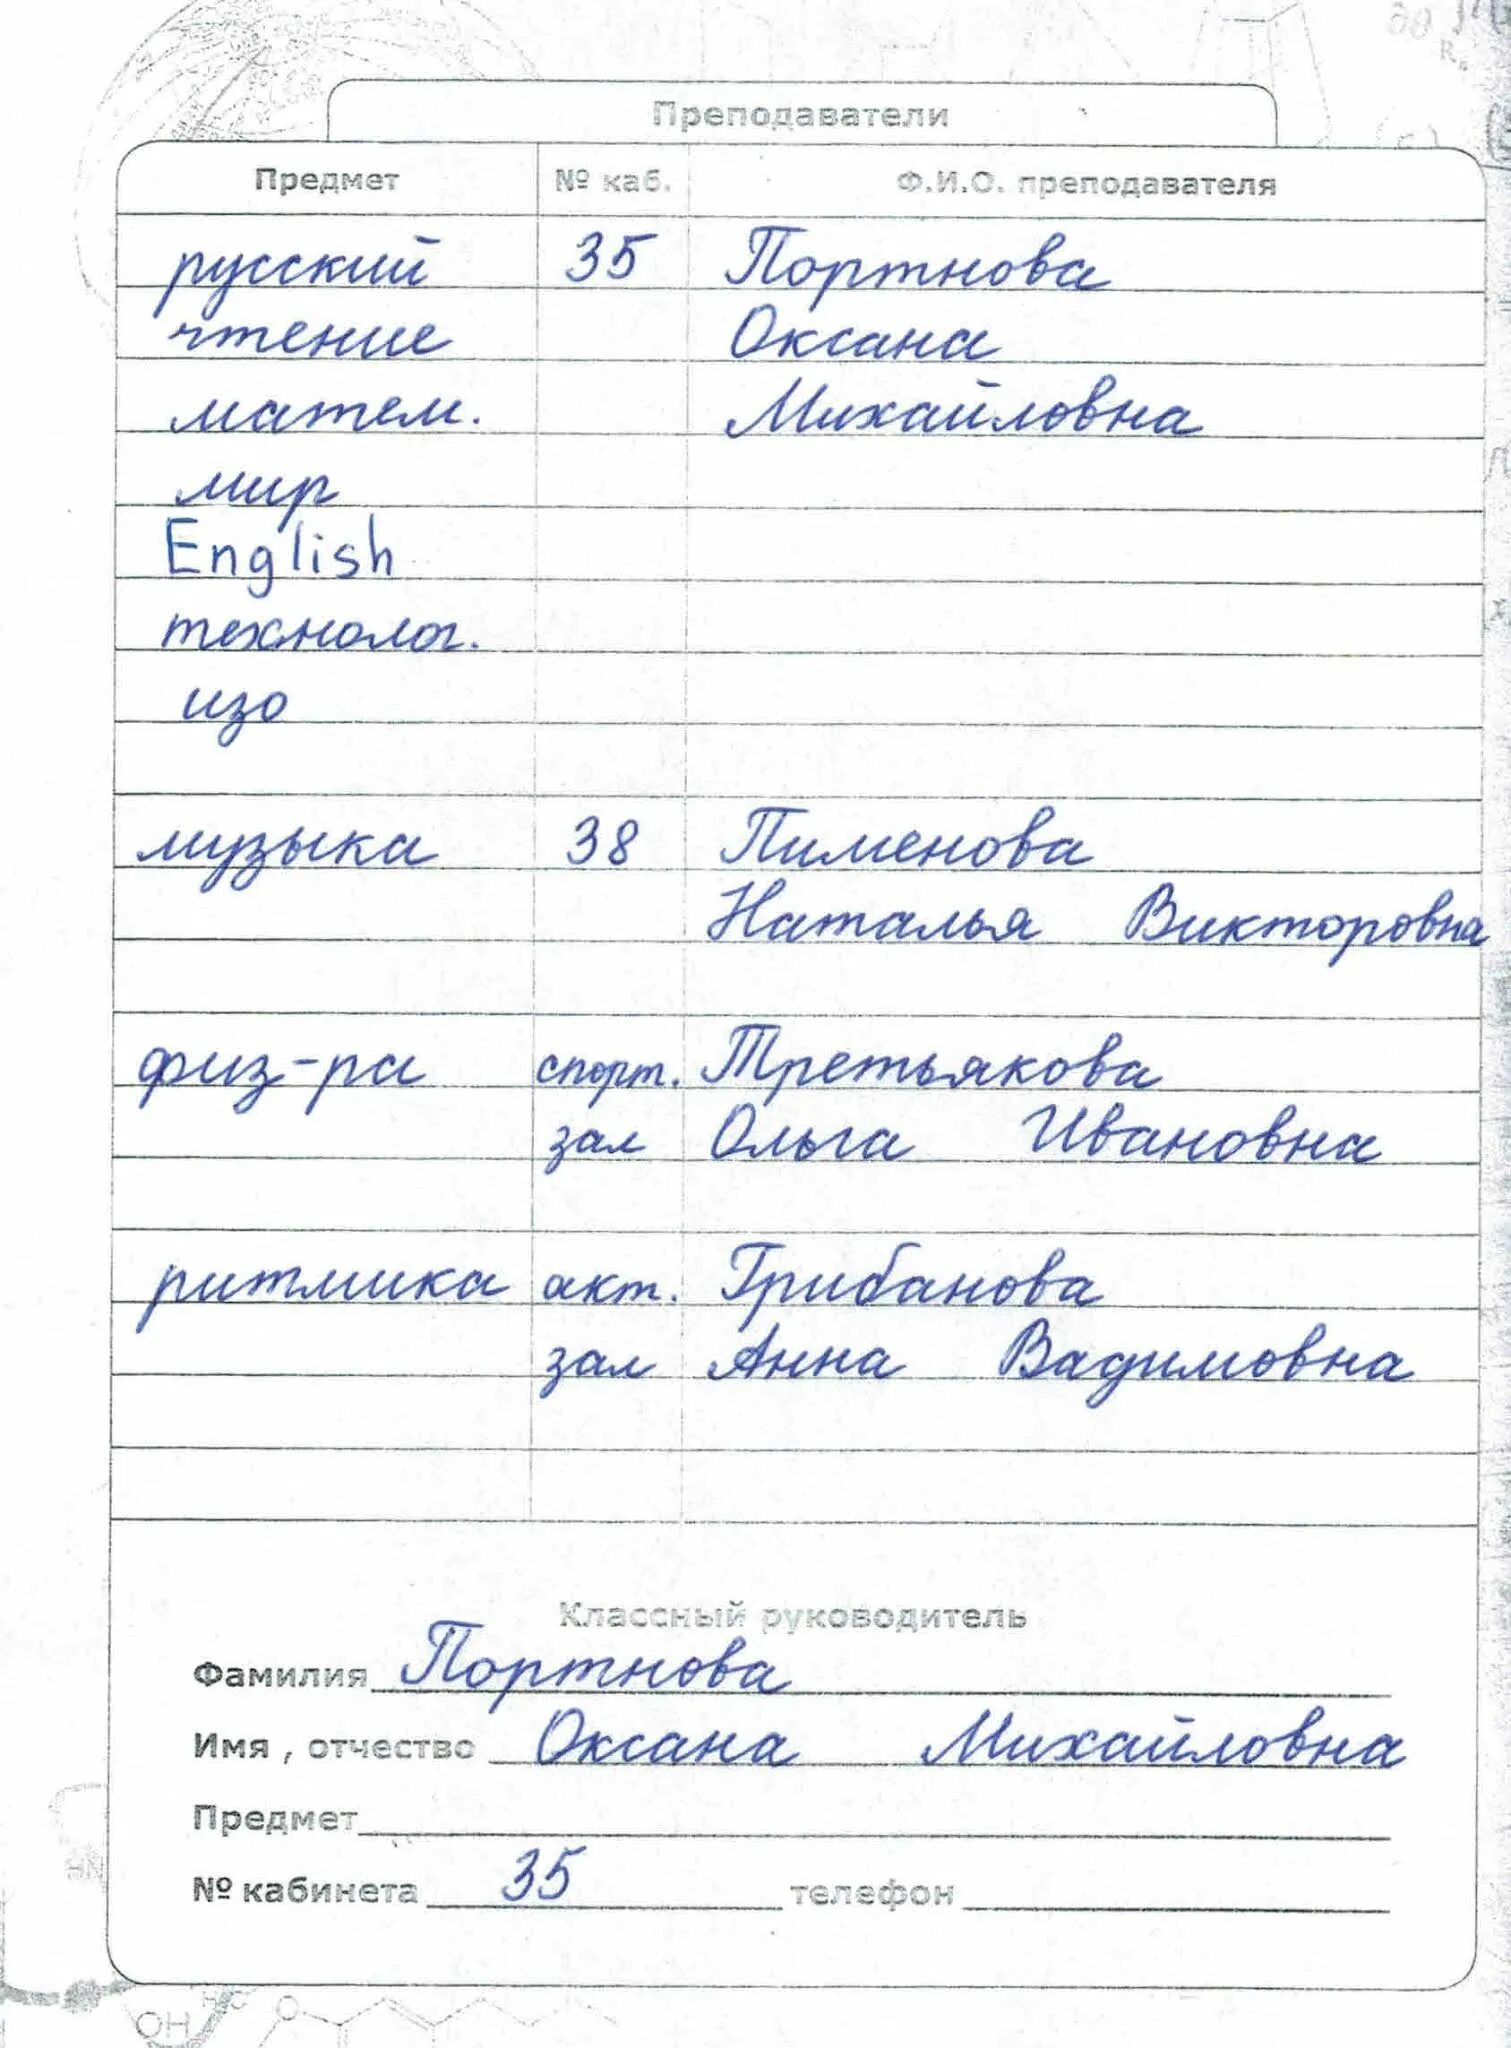 Преподаватели
Предмет № каб. Ф.И.О. преподавателя
русский 35 Портнова
чтение Оксана
матем. Михайловна
мир
English
технолог.
изо
музыка 38 Пименова
Наталья Викторовна
физ-ра спорт. Третьякова
зал Ольга Ивановна
ритмика акт. Грибанова
зал Анна Вадимовна
Классный руководитель
Фамилия Портнова
Имя, отчество Оксана Михайловна
Предмет
№ кабинета 35 телефон
OH